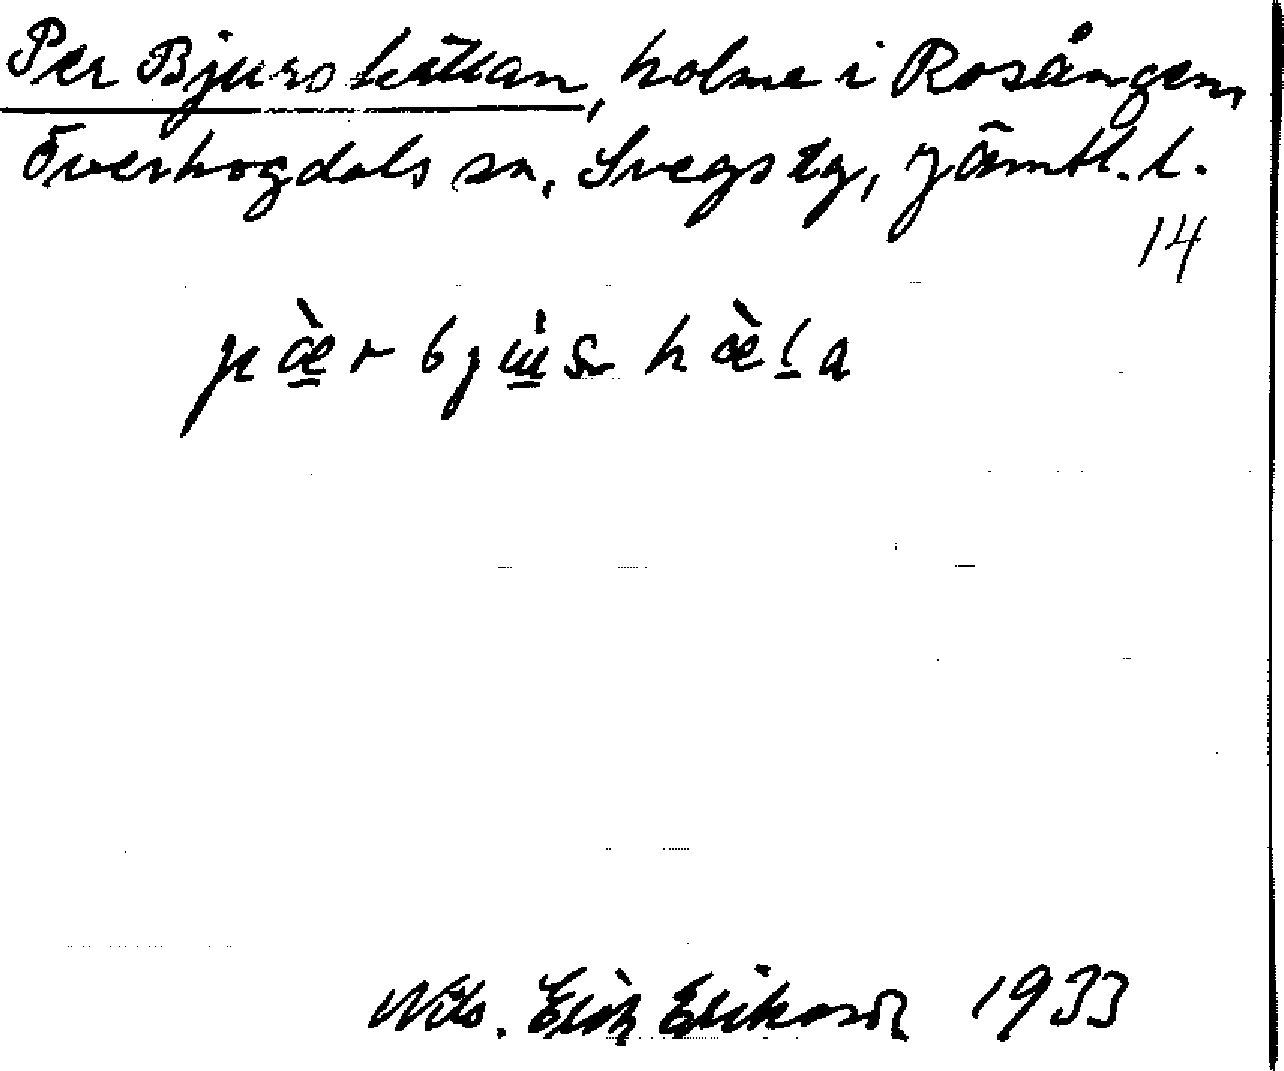 Per Bjurshällan, holme i Rosången,
Överhogdals sn, Svegs tg, Jämtl. l.
14
pæ̀r
Nils. Erik Eriksson 1933